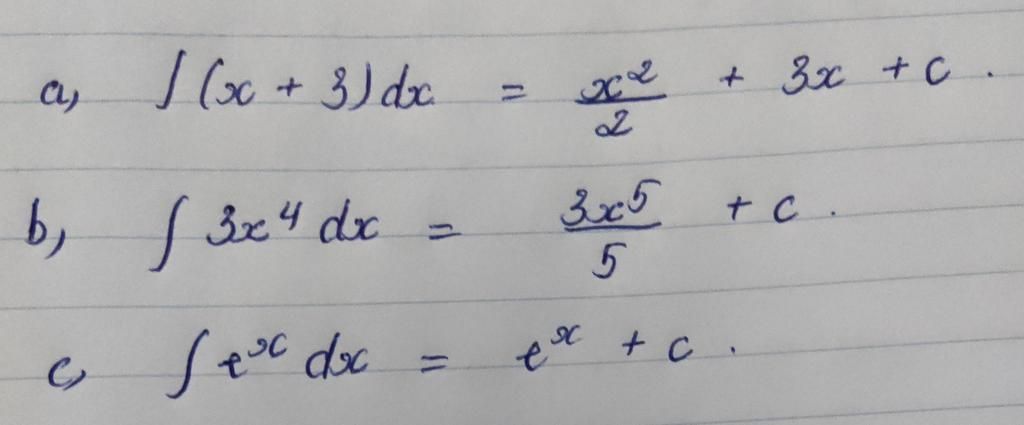 a, ∫(x + 3)dx = x²/2 + 3x + c.
b, ∫ 3x⁴ dx = 3x⁵/5 + c.
c, ∫eˣ dx = eˣ + c.